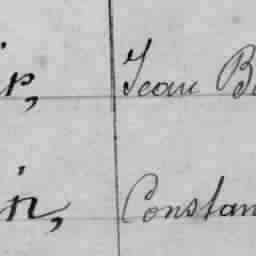 ir, Jean B
in, Constan